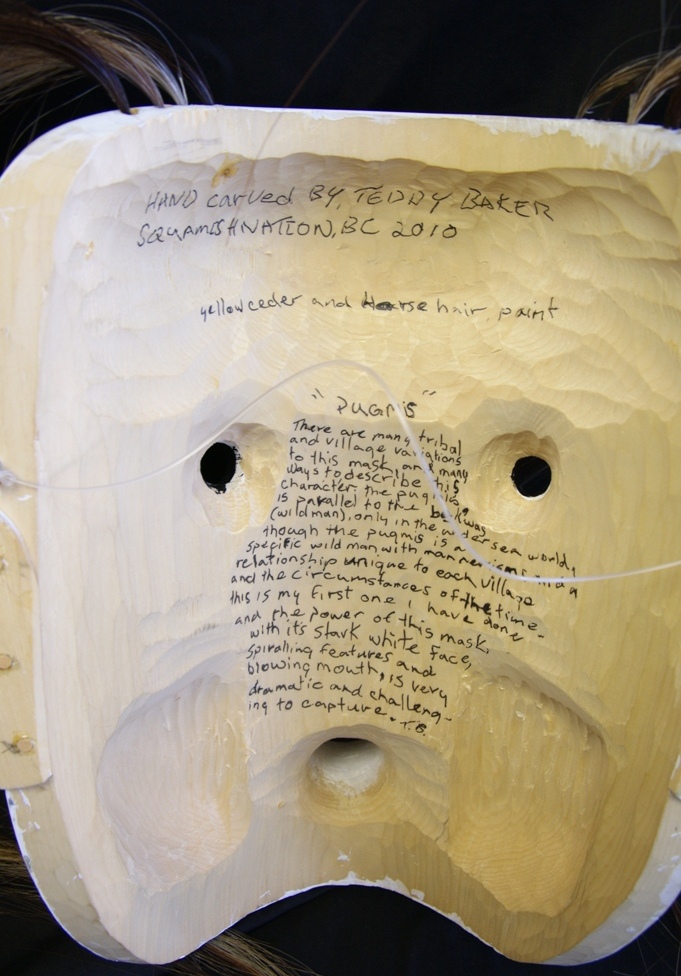 HAND carved BY, TEDDY BAKER
SQUAMISHNATION, BC 2010
yellowceder and Hoarse hair, paint
"Pugmis"
There are many tribal
and village variations
to this mask, and many
ways to describe this
character, the pugmis
is parallel to the bukwus
(wildman), only in the undersea world,
though the pugmis is a
specific wild man, with mannerisms and a
relationship unique to each village
and the circumstances of the time.
this is my first one i have done
and the power of this mask,
with its stark white face,
spiralling features and
blowing mouth, is very
dramatic and challeng-
ing to capture. T.B.